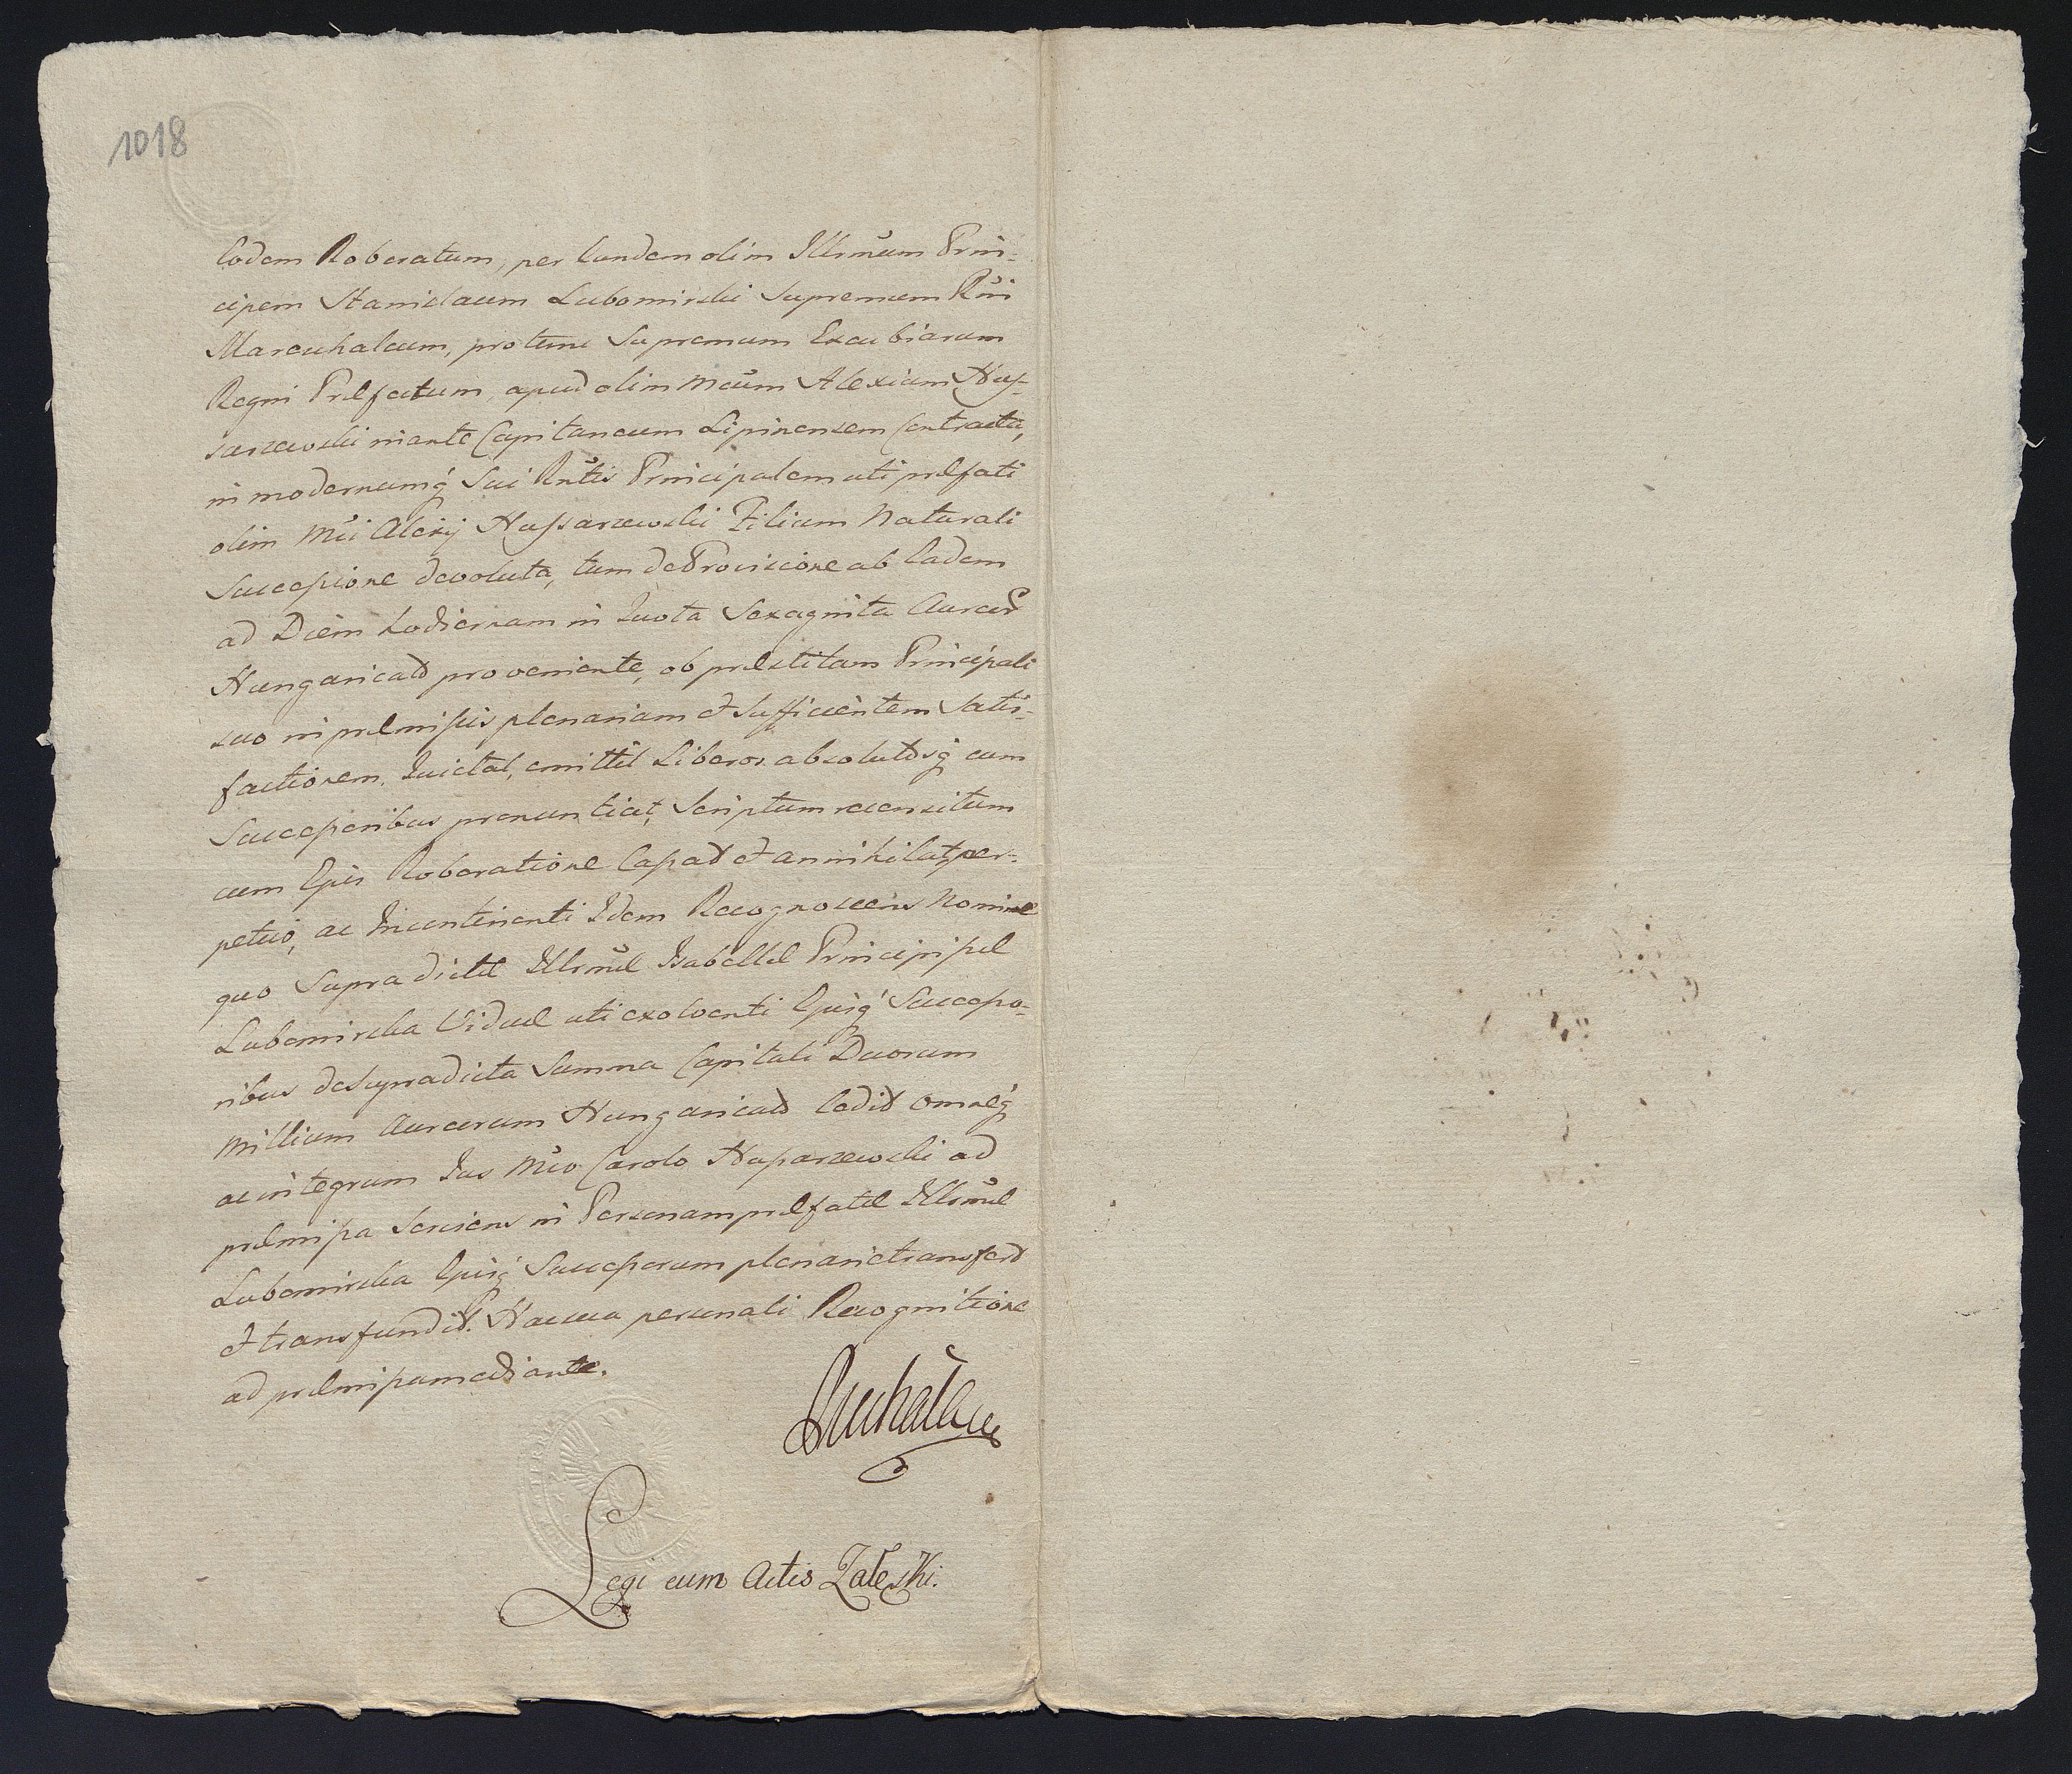 1018
Eodem Roboratum, per Eundem olim Illrmum Prin-
cipem Stanislaum Lubomirski Supremum Rni
Mareschalcum, protunc Supremum Excubiarum
Regni Præfectum, apud olim Mcum Alexium Hus-
sarzewski niante Capitaneum Lipinensem Contracta,
in modernumq Sui Rntis Principalem uti præfati
olim Mci Alexij Hussarzewski Filium Naturali
Successione devoluta, tum de Provisione ab Eadem
ad Diem hodiernam in Quota Sexaginta Aureor
Hungaricalium proveniente, ob præstitam Principali
suo in præmissis plenariam et sufficientem Satis-
factionem, Quietat, emittit Liberos absolutosq cum
Successoribus pronuntiat, Scriptum recensitum
cum Ejus Roboratione Cassat et annihilat, per-
petuo, ac Incontinenti Idem Recognoscens Nomine
quo Supra dictæ Illrmæ Isabellæ Principissæ
Lubomirska Viduæ uti exolventi Ejusq Successo-
ribus de supradicta Summa Capitali Duorum
Millium Aureorum Hungaricalium Cedit Omneq
ac integrum Jus Mco Carolo Hussarzewski ad
præmissa Serviens in Personam præfatæ Illrmæ
Lubomirska Ejusq Successorum plenarie transfert
et transfundit. Hacsua personali Recognitione
ad præmissa mediante.
Legi cum Actis Zaleski.